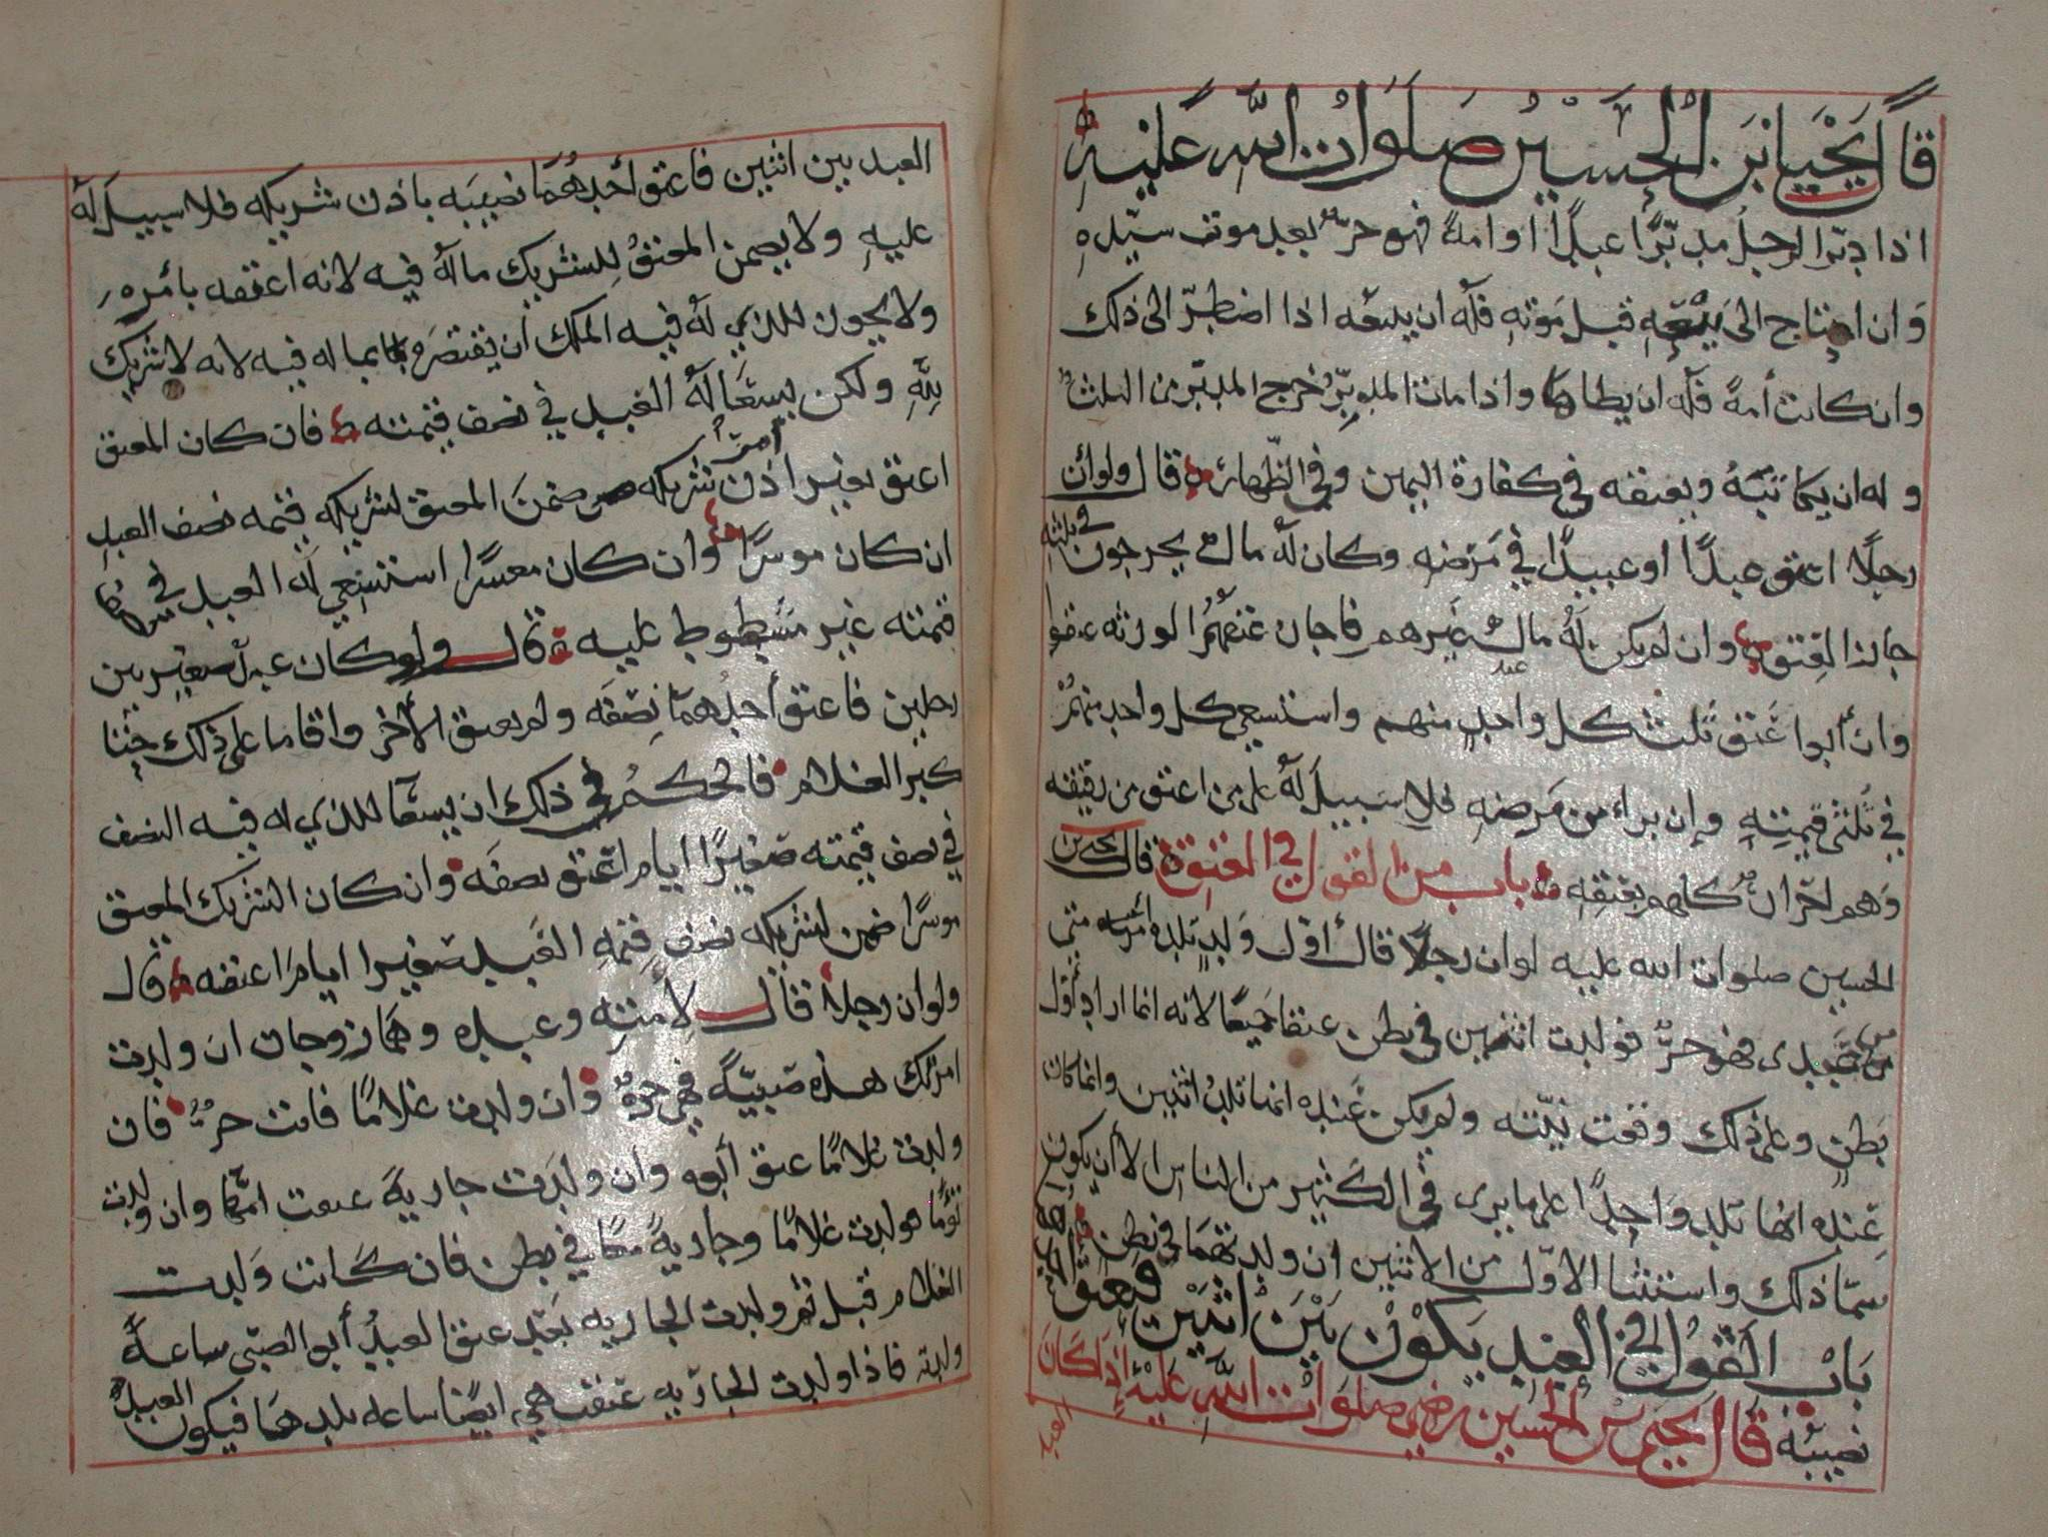 قال يحيى بن الحسين صلوات الله عليه
اذا دبّر الرجل مدبّرًا عبدًا او امة فهو حرّ بعد موت سيّده
وان احتاج الى بيعه قبل موته فله ان يبيعه اذا اضطرّ الى ذلك
وان كانت أمة فله ان يطاها واذا مات المدبّر خرج المدبّر من الثلث
وله ان يكاتبه ويعتقه في كفارة اليمين وفي الظهار قال ولو أن
رجلًا اعتق عبدًا او عبيدًا في مرضه وكان له مال يخرجون في ثلثه
جاز العتق وان لم يكن له مال غيرهم فاجاز عتقهم الورثه عتقوا
وان أبوا عتق ثلث كل واحد منهم واستسعي كل واحد منهم
في ثلثي قيمته وإن براء من مرضه فلا سبيل له على من اعتق من رقيقه
وهم احرار كلهم بعتقه باب من القول في العتق قال يحيى بن
الحسين صلوات الله عليه لو ان رجلًا قال أوّل ولد تلده امتي
من عبدي فهو حرّ فولدت اثنين في بطن عتقا جميعًا لانه انما اراد أول
بطن وعلى ذلك وقعت نيّته ولم يكن عنده انها تلد اثنين وانما كان
عنده انها تلد واحدًا على ما يرى في الكثير من الناس الا أن يكون
سمّا ذلك واستثنا الاوّل من الاثنين ان ولدتهما في بطن
باب القول في العبد يكون بين اثنين فيعتق احدهما
نصيبه قال يحيى بن الحسين صلوات الله عليه اذا كان
العبد
العبد بين اثنين فاعتق أحدهما نصيبه باذن شريكه فلا سبيل له
عليه ولا يضمن المعتق للشريك ماله فيه لانه اعتقه بأمره
ولا يجوز للذي له فيه الملك أن يقتصر بماله فيه لانه لا شريك
لله ولكن يستعا له العبد في نصف قيمته فان كان المعتق
اعتق بغير اذن أمر شريكه ضمن المعتق لشريكه قيمه نصف العبد
ان كان موسرًا وان كان معسرًا استسعي له العبد في نصف
قيمته غير مشطوط عليه قال ولو كان عبد صغير بين
رجلين فاعتق أحدهما نصفه ولم يعتق الأخر واقاما على ذلك حتا
كبر الغلام فالحكم في ذلك ان يستعا للذي له فيه النصف
في نصف قيمته صغيرًا ايام اعتق نصفه وان كان الشريك المعتق
موسرًا ضمن لشريكه نصف قيمه العبد صغيرا ايام اعتقه قال
ولو ان رجلا قال لأمته وعبده وهما زوجان ان ولدت
امرتك هذه صبيّة فهي حرّة وان ولدت غلامًا فانت حرّ فان
ولدت غلامًا عتق أبوه وان ولدت جارية عتقت امّها وان ولدت
توًما فولدت غلامًا وجارية معًا في بطن فان كانت ولدت
الغلام قبل ثم ولدت الجاريه بعد عتق العبد أبو الصبي ساعة
ولدته فاذا ولدت الجاريه عتقت هي ايضًا ساعه تلدهما فيكون العبد